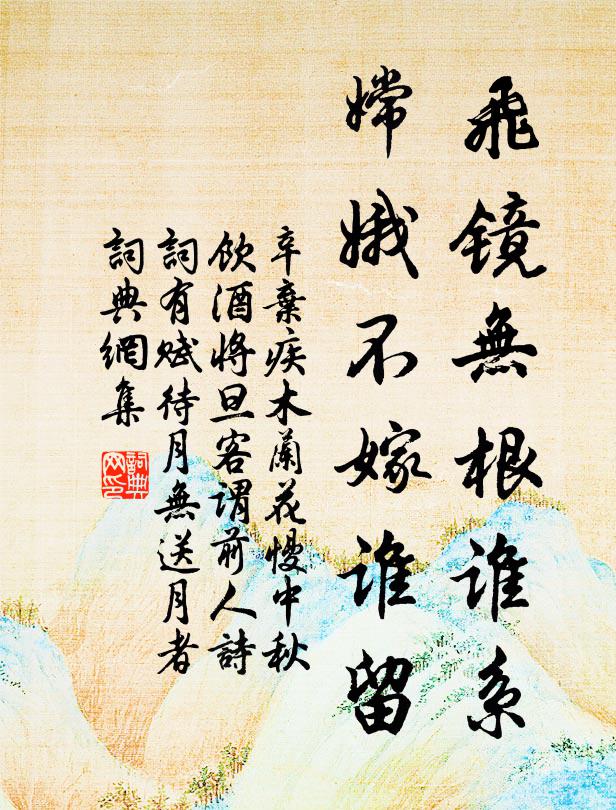 飛鏡無根誰系
嫦娥不嫁誰留
辛棄疾木蘭花慢中秋
飲酒將旦客謂前人詩
詞有賦待月無送月者
詞典網集
詞典網印